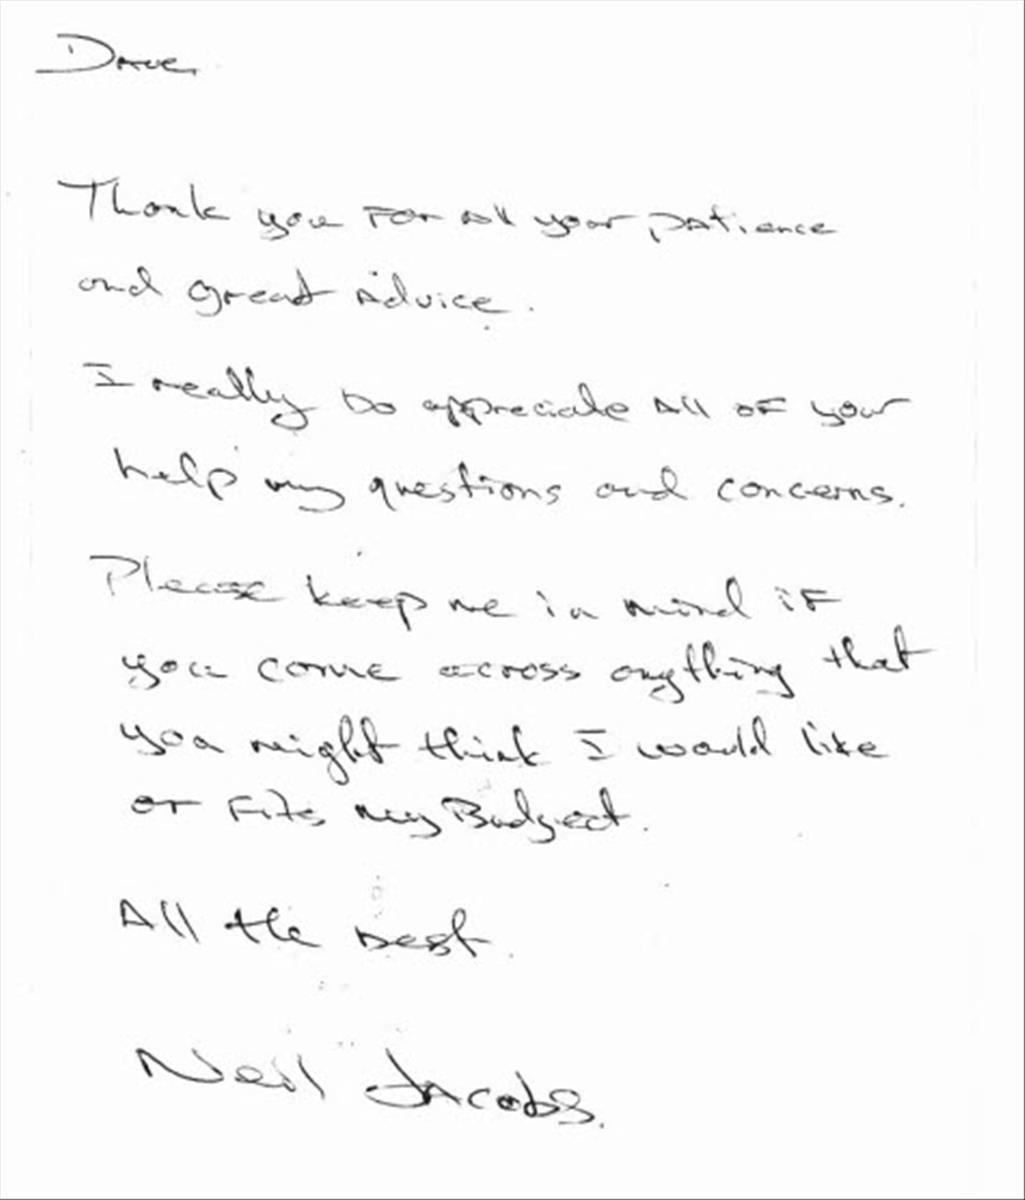 Dave
Thank you For All your patience
and great Advice.
I really Do appreciate All of your
help my questions and concerns.
Please keep me in mind if
you come across anything that
you might think I would like
or Fits my Budgect.
All the Best.
Neil Jacobs.